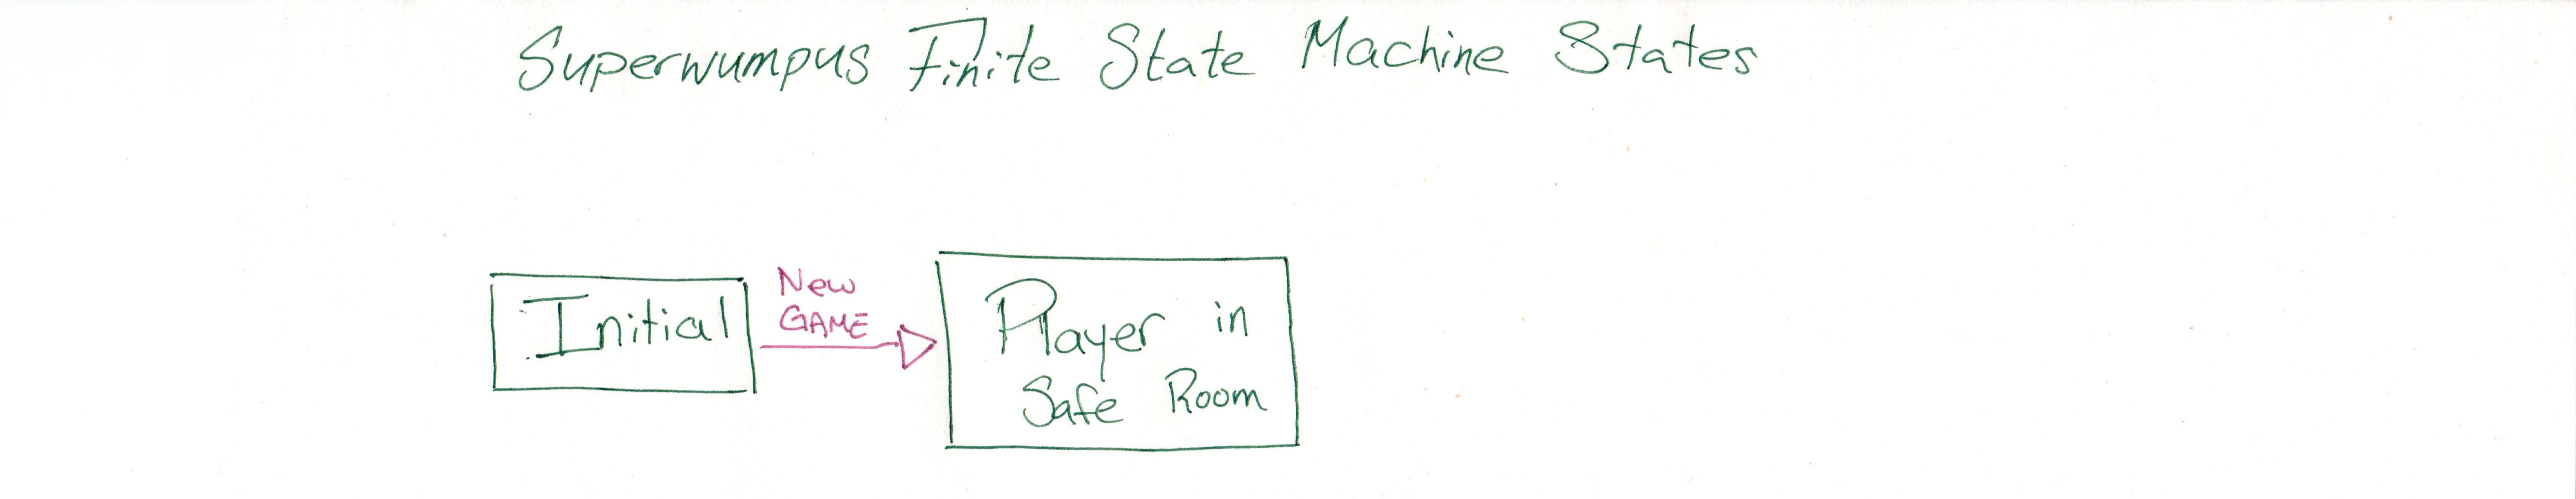 Superwumpus Finite State Machine States
Initial
New
GAME
Player in
Safe Room